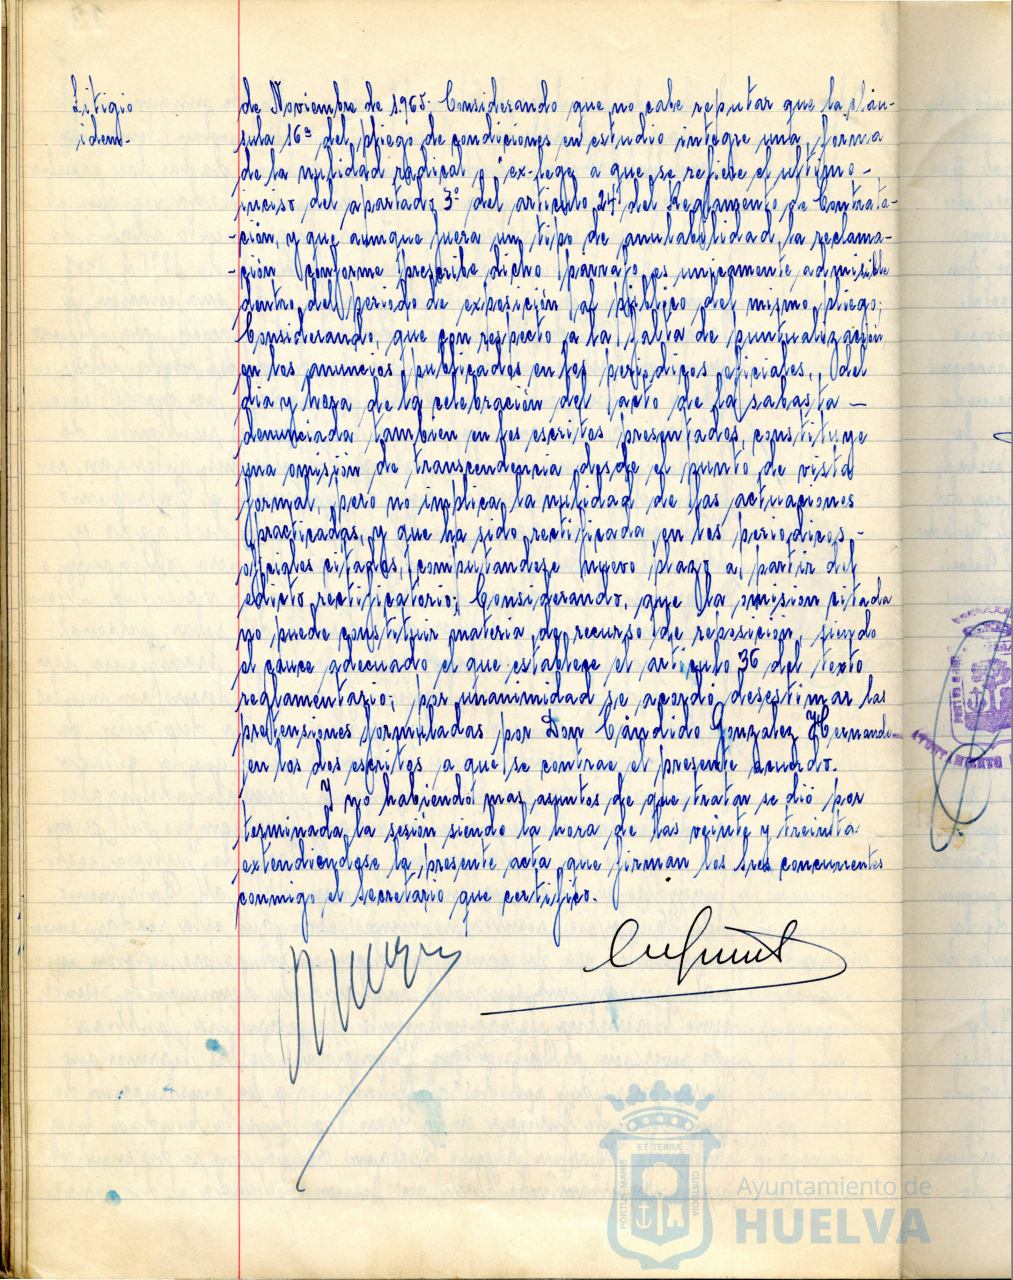 Litigio
idem.
de Noviembre de 1.965; Considerando que no cabe reputar que la cláu-
sula 16ª del pliego de condiciones en estudio integre una forma
de la nulidad radical o ex-lege a que se refiere el ultimo -
inciso del apartado 3º del articulo 24 del Reglamento de Contrata-
ción, y que aunque fuera un tipo de anulabilidad, la reclama-
-ción conforme prescribe dicho parrafo es unicamente admisible
dentro del periodo de exposición al público del mismo pliego;
Considerando, que con respecto a la falta de puntualización
en los anuncios publicados en los periodicos oficiales, del
dia y hora de la celebración del acto de la subasta -
denunciada tambien en los escritos presentados, constituye
una omisión de transcendencia desde el punto de vista
formal, pero no implica la nulidad de las actuaciones
practicadas, y que ha sido rectificada en los periodicos -
oficiales citados, computandose nuevo plazo a partir del
edicto rectificatorio; Considerando, que la omision citada
no puede constituir materia de recurso de reposición, siendo
el cauce adecuado el que establece el articulo 36 del texto
reglamentario; por unanimidad se acordó desestimar las
pretensiones formuladas por Don Cándido Gonzalez Hernando
en los dos escritos a que se contrae el presente acuerdo.
Y no habiendo mas asuntos de que tratar se dió por
terminada la sesión siendo la hora de las veinte y treinta
extendiendose la presente acta que firman los Sres concurrentes
conmigo el Secretario que certifico.
ET TERRÆ
PORTUS MARIS
CUSTODIA
Ayuntamiento de
HUELVA